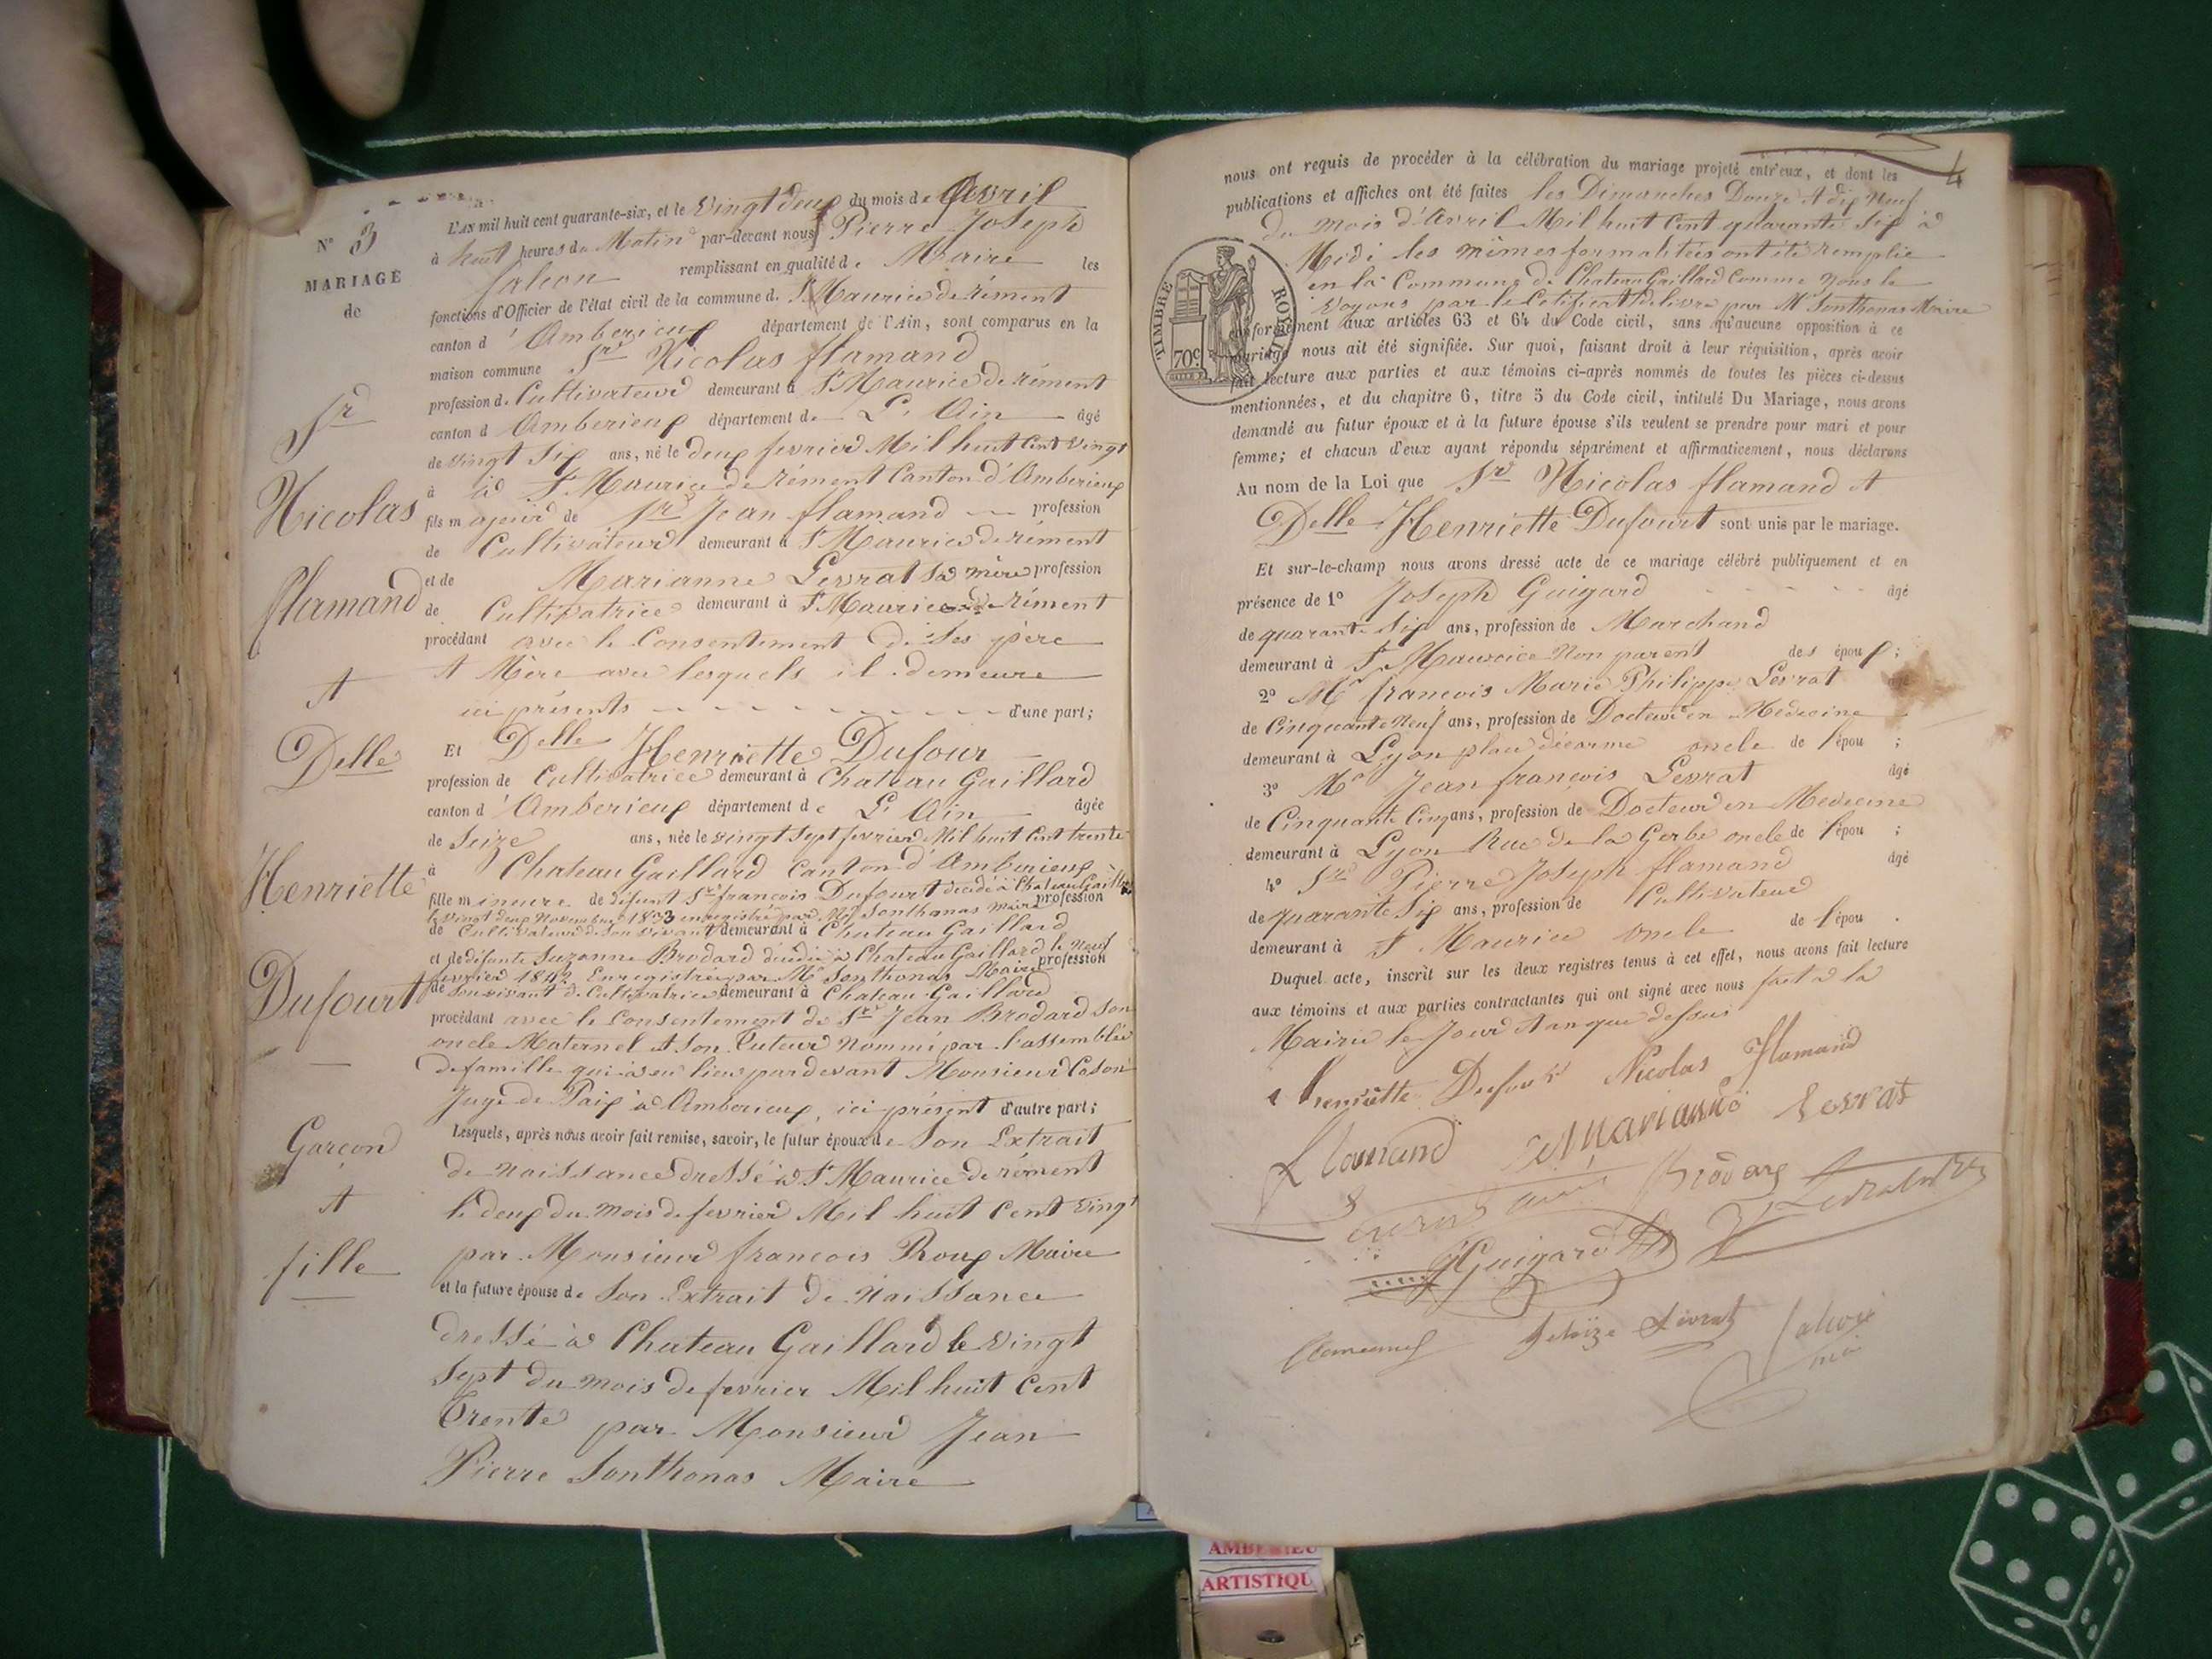 N° 3
MARIAGE
de
Sr
Nicolas
flamand
et
Delle
Henriette
Dufourt
Garçon
et
fille
L'AN mil huit cent quarante-six, et le vingt deux du mois de Avril
à huit heures du Matin par-devant nous Pierre Joseph
falcon remplissant en qualité de Maire les
fonctions d'Officier de l'état civil de la commune de St Maurice de rément
canton d'Amberieux département de l'Ain, sont comparus en la
maison commune Sr Nicolas flamand
profession de Cultivateur demeurant à St Maurice de rément
canton d'Amberieux département de L'Ain âgé
de vingt Six ans, né le deux fevrier Mil huit Cent vingt
à à St Maurice de rément Canton d'Amberieux
fils majeur de Sr Jean flamand profession
de Cultivateur demeurant à St Maurice de rément
et de Marianne Levrat Sa mère profession
de Cultivatrice demeurant à St Maurice de rément
procédant avec le Consentement de Ses père
et Mère avec lesquels il demeure
ici présents d'une part;
Et Delle Henriette Dufour
profession de Cultivatrice demeurant à Chateau Gaillard
canton d'Amberieux département de L'Ain âgée
de Seize ans, née le vingt Sept fevrier Mil huit Cent trente
à Chateau Gaillard Canton d'Amberieux
fille mineure de défunt Sr francois Dufourt décédé à Chateau Gaillard profession
le vingt deux Novembre 1833 enregistré par Mr Sonthonas maire
de Cultivateur de Son vivant demeurant à Chateau Gaillard
et de défunte Suzanne Brodard décédée à Chateau Gaillard le Neuf
fevrier 1842 Enregistrée par Mr Sonthonas Maire profession
de Son vivant de Cultivatrice demeurant à Chateau Gaillard
procédant avec le Consentement de Sr Jean Brodard Son
oncle Maternel et Son Tuteur Nommé par l'assemblée
de famille qui a eu lieu pardevant Monsieur
Juge de Paix à Amberieux, ici présent d'autre part;
Lesquels, après nous avoir fait remise, savoir, le futur époux de Son Extrait
de Naissance dressé à St Maurice de rément
le deux du mois de fevrier Mil huit Cent vingt
par Monsieur francois Roux Maire
et la future épouse de Son Extrait de Naissance
dressé à Chateau Gaillard le vingt
Sept du mois de fevrier Mil huit Cent
Trente par Monsieur Jean
Pierre Sonthonas Maire
4
nous ont requis de procéder à la célébration du mariage projeté entr'eux, et dont les
publications et affiches ont été faites les Dimanches Douze et dix Neuf
du mois d'Avril Mil huit Cent quarante Six à
Midi les mêmes formalitées ont été remplie
en la Commune de Chateau Gaillard Comme Nous le
voyons par le Cetificat délivré par Mr Sonthonas Maire
conformément aux articles 63 et 64 du Code civil, sans qu'aucune opposition à ce
mariage nous ait été signifiée. Sur quoi, faisant droit à leur réquisition, après avoir
fait lecture aux parties et aux témoins ci-après nommés de toutes les pièces ci-dessus
mentionnées, et du chapitre 6, titre 5 du Code civil, intitulé Du Mariage, nous avons
demandé au futur époux et à la future épouse s'ils veulent se prendre pour mari et pour
femme; et chacun d'eux ayant répondu séparément et affirmativement, nous déclarons
Au nom de la Loi que Sr Nicolas flamand et
Delle Henriette Dufourt sont unis par le mariage.
Et sur-le-champ nous avons dressé acte de ce mariage célébré publiquement et en
présence de 1° Joseph Guigard âgé
de quarante Six ans, profession de Marchand
demeurant à St Maurice Non parent des époux;
2° Mr francois Marie Philippe Levrat âgé
de Cinquante Neuf ans, profession de Docteur en Medecine
demeurant à Lyon place oncle de l'épou ;
3° Mr Jean françois Levrat âgé
de Cinquante Cinq ans, profession de Docteur en Medecine
demeurant à Lyon Rue de la Gerbe oncle de l'épou ;
4° Sr Pierre Joseph flamand âgé
de quarante Six ans, profession de Cultivateur
demeurant à St Maurice oncle de l'épou .
Duquel acte, inscrit sur les deux registres tenus à cet effet, nous avons fait lecture
aux témoins et aux parties contractantes qui ont signé avec nous fait à la
Mairie le Jour et an que dessus
henriette Dufourt Nicolas Flamand
flamand Marianne Levrat
Brodard
JGuigard
Levrat
TIMBRE ROYAL
70c
AMBERIEU
ARTISTIQU